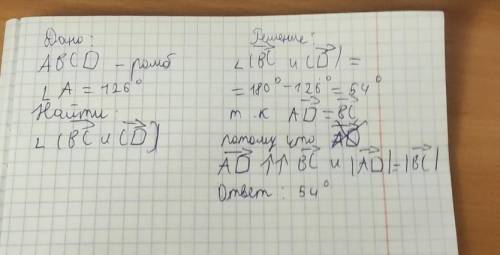 Дано:
ABCD - ромб
∠A = 126°
Найти:
∠(BC и CD)
Решение:
∠(BC и CD) =
= 180° - 126° = 54°
т.к AD = BC
потому что
AD ↑↑ BC и |AD| = |BC|
Ответ: 54°